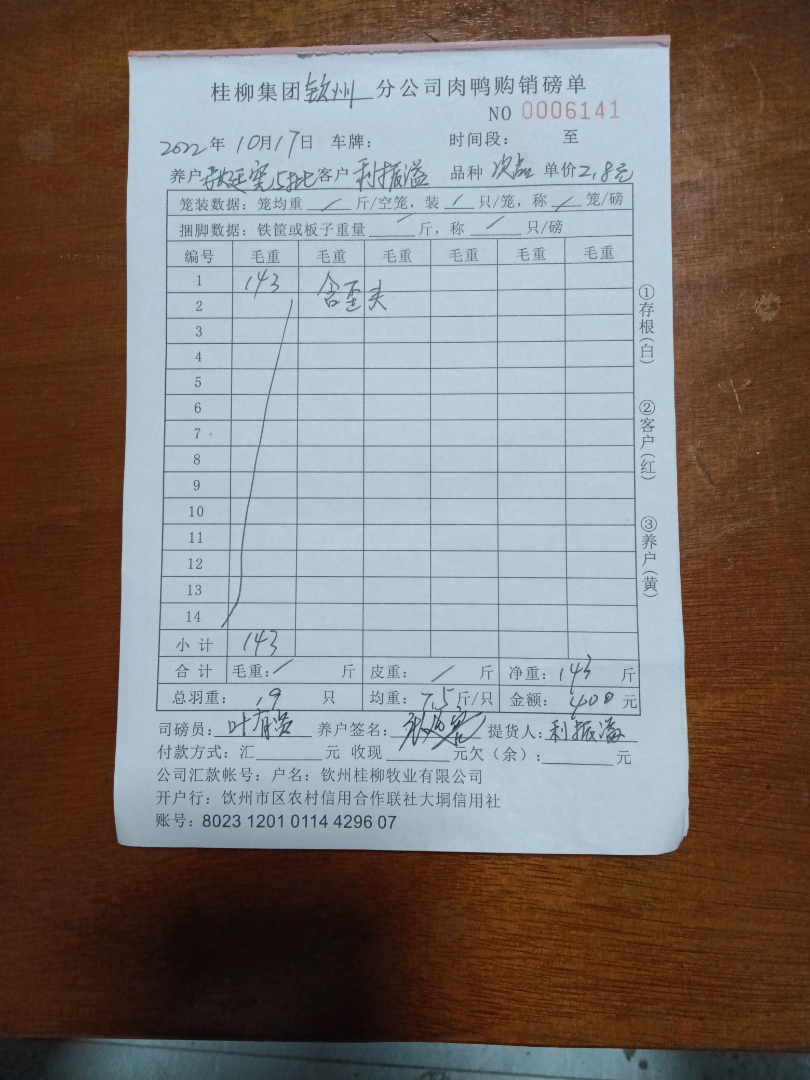 桂柳集团钦州分公司肉鸭购销磅单
NO 0006141
2022年10月17日 车牌： 时间段： 至
养户 5批 客户 利振溢 品种 次品 单价2.8元
笼装数据：笼均重 / 斤/空笼，装 / 只/笼，称 / 笼/磅
捆脚数据：铁筐或板子重量 / 斤，称 / 只/磅
编号 毛重 毛重 毛重 毛重 毛重 毛重
1 143 含歪头
2
3
4
5
6
7
8
9
10
11
12
13
14
小计 143
合计 毛重：/ 斤 皮重： / 斤 净重：143 斤
总羽重： 19 只 均重：7.5斤/只 金额：400元
司磅员：叶 养户签名： 提货人：利振溢
付款方式：汇 元 收现 元欠（余）： 元
公司汇款帐号：户名：钦州桂柳牧业有限公司
开户行：钦州市区农村信用合作联社大垌信用社
账号：8023 1201 0114 4296 07
①存根（白）
②客户（红）
③养户（黄）